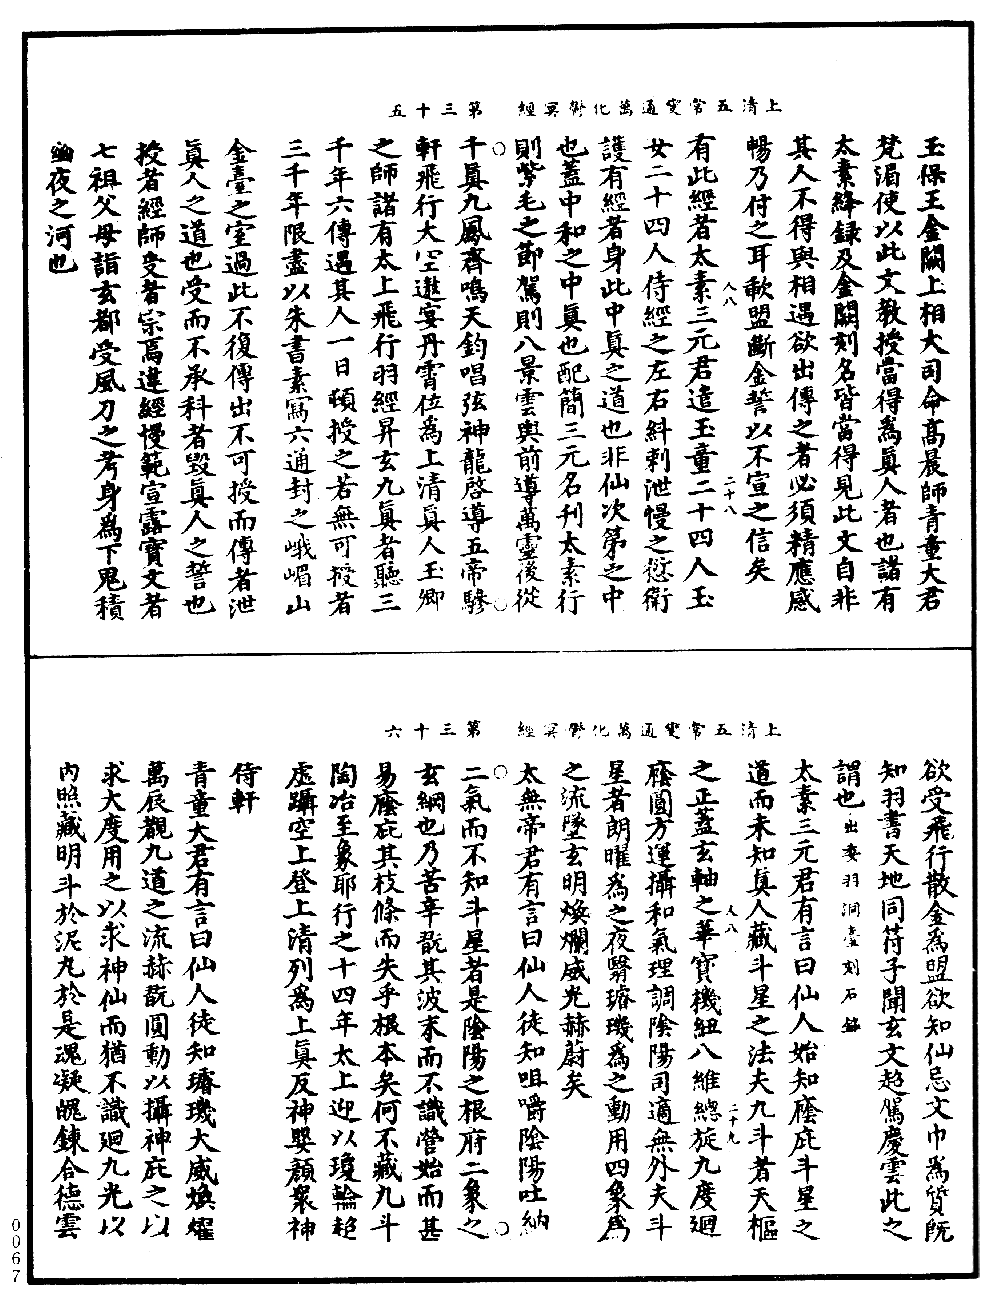 上清五常變通萬化鬱冥經　第三十五
玉保王金闕上相大司命高晨師青童大君
梵渴使以此文教授當得為真人者也諸有
太素絳録及金闕刻名皆當得見此文自非
其人不得與相遇欲出傳之者必須精應感
暢乃付之耳歃盟斷金誓以不宣之信矣
人八
二十八
有此經者太素三元君遣玉童二十四人玉
女二十四人侍經之左右糾剌泄慢之愆衛
護有經者身此中真之道也非仙次第之中
也蓋中和之中真也配簡三元名刊太素行
則紫毛之節駕則八景雲輿前導萬靈後從
千真九鳳齊鳴天鈞唱弦神龍啓導五帝驂
軒飛行大空遊宴丹霄位為上清真人玉卿
之師諸有太上飛行羽經昇玄九真者聽三
千年六傳遇其人一日頓授之若無可授者
三千年限盡以朱書素寫六通封之峨嵋山
金臺之室過此不復傳出不可授而傳者泄
真人之道也受而不承科者毀真人之誓也
授者經師受者宗焉違經慢範宣露寶文者
七祖父母詣玄都受風刀之考身為下鬼積
幽夜之河也
上清五常變通萬化鬱冥經　第三十六
欲受飛行散金為盟欲知仙忌文巾為質既
知羽書天地同符子聞玄文超騰慶雲此之
謂也出委羽洞臺刻石銘
太素三元君有言曰仙人始知蔭庇斗星之
道而未知真人藏斗星之法夫九斗者天樞
之正蓋玄軸之華寶機紐八維總旋九度迴
人八
二十九
蔭圓方運攝和氣理調陰陽司適無外夫斗
星者朗曜為之夜翳璿璣為之動用四象為
之流墜玄明煥爛威光赫蔚矣
太無帝君有言曰仙人徒知咀嚼陰陽吐納
二氣而不知斗星者是陰陽之根府二象之
玄綱也乃苦辛翫其波末而不識營始而甚
易蔭庇其枝條而失乎根本矣何不藏九斗
陶冶至象耶行之十四年太上迎以瓊輪超
虛躡空上登上清列為上真反神嬰顏衆神
侍軒
青童大君有言曰仙人徒知璿璣大威煥燿
萬辰觀九道之流赫翫圓動以攝神庇之以
求大度用之以求神仙而猶不識迴九光以
內照藏明斗於泥丸於是魂凝魄鍊合德雲
0067